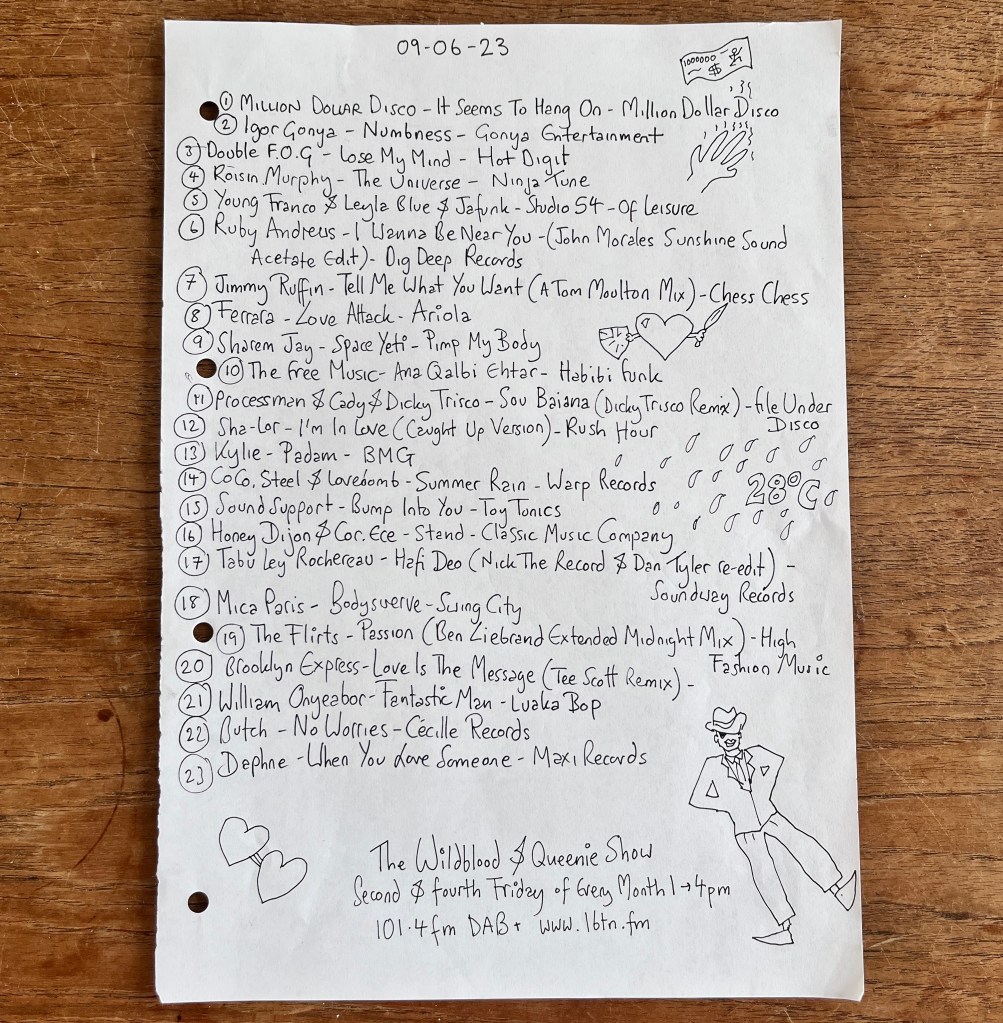 09-06-23
1000000
$
① Million Dollar Disco - It Seems To Hang On - Million Dollar Disco
② Igor Gonya - Numbness - Gonya Entertainment
③ Double F.O.G - Lose My Mind - Hot Digit
④ Róisín Murphy - The Universe - Ninja Tune
⑤ Young Franco & Leyla Blue & Jafunk - Studio 54 - Of Leisure
⑥ Ruby Andrews - I Wanna Be Near You - (John Morales Sunshine Sound
Acetate Edit) - Dig Deep Records
⑦ Jimmy Ruffin - Tell Me What You Want (A Tom Moulton Mix) - Chess Chess
⑧ Ferrara - Love Attack - Ariola
⑨ Sharem Jay - Space Yeti - Pimp My Body
⑩ The Free Music - Ana Qalbi Ehtar - Habibi Funk
⑪ Processman & Cady & Dicky Trisco - Sou Baiana (Dicky Trisco Remix) - File Under
Disco
⑫ Sha-Lor - I'm In Love (Caught Up Version) - Rush Hour
⑬ Kylie - Padam - BMG
⑭ CoCo, Steel & Lovebomb - Summer Rain - Warp Records
28°C
⑮ Sound Support - Bump Into You - Toy Tonics
⑯ Honey Dijon & Cor. Ece - Stand - Classic Music Company
⑰ Tabu Ley Rochereau - Hafi Deo (Nick The Record & Dan Tyler re-edit) -
Soundway Records
⑱ Mica Paris - Bodyswerve - Swing City
⑲ The Flirts - Passion (Ben Liebrand Extended Midnight Mix) - High
Fashion Music
⑳ Brooklyn Express - Love Is The Message (Tee Scott Remix) -
㉑ William Onyeabor - Fantastic Man - Luaka Bop
㉒ Butch - No Worries - Cécille Records
㉓ Dephne - When You Love Someone - Maxi Records
The Wildblood & Queenie Show
Second & Fourth Friday of Every Month 1→4pm
101.4fm DAB+ www.1btn.fm